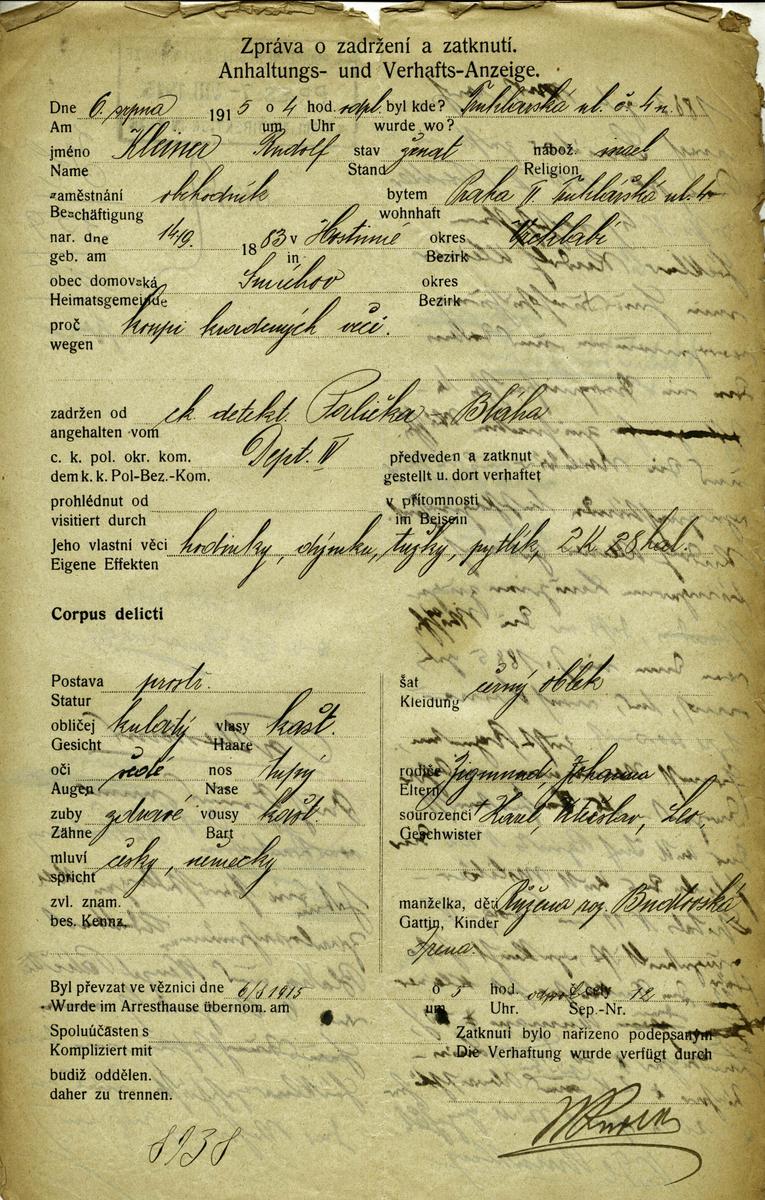 Zpráva o zadržení a zatknutí.
Anhaltungs- und Verhafts-Anzeige.
Dne 6. srpna 1915 o 4 hod. odpl. byl kde? Truhlářská ul. č. 4 n.
Am um Uhr wurde wo?
jméno Kleiner Rudolf stav ženat nábož. israel
Name Stand Religion
zaměstnání obchodník bytem Praha II. Truhlářská ul. 4
Beschäftigung wohnhaft
nar. dne 14/9. 1883 v Hostinné okres Vrchlabí
geb. am in Bezirk
obec domovská Smíchov okres
Heimatsgemeinde Bezirk
proč koupi kradených věcí.
wegen
zadržen od ck. detekt. Bláha
angehalten vom
c. k. pol. okr. kom. Dept. IV předveden a zatknut
dem k. k. Pol-Bez.-Kom. gestellt u. dort verhaftet
prohlédnut od v přítomnosti
visitiert durch im Beisein
Jeho vlastní věci hodinky, dýmku, tužky, pytlík, 2 K 28 hal.
Eigene Effekten
Corpus delicti
Postava prostř. šat černý oblek
Statur Kleidung
obličej kulatý vlasy kašt.
Gesicht Haare
oči šedé nos tupý rodiče Zigmund, Johanna
Augen Nase Eltern
zuby zdravé vousy kašt. sourozenci Karel, Leo,
Zähne Bart Geschwister
mluví česky, německy
spricht
zvl. znam. manželka, děti Růžena roz.
bes. Kennz. Gattin, Kinder
Irena.
Byl převzat ve věznici dne 6/8 1915 o 5 hod. odpol. č. cely 12
Wurde im Arresthause übernom. am um Uhr. Sep.-Nr.
Spoluúčasten s Zatknutí bylo nařízeno podepsaným
Kompliziert mit Die Verhaftung wurde verfügt durch
budiž oddělen.
daher zu trennen.
8938